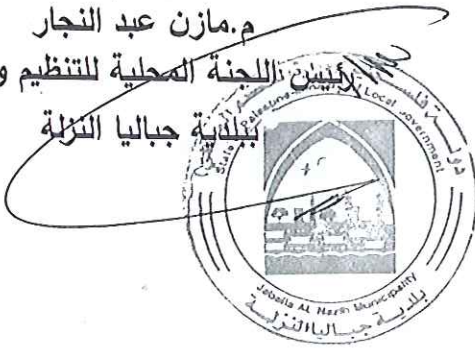 م.مازن عبد النجار
رئيس اللجنة المحلية للتنظيم و
ببلدية جباليا النزلة
دولة
State Palestine Local Government
Jabalia AL Nazla Municipality
بلدية جباليا النزلة